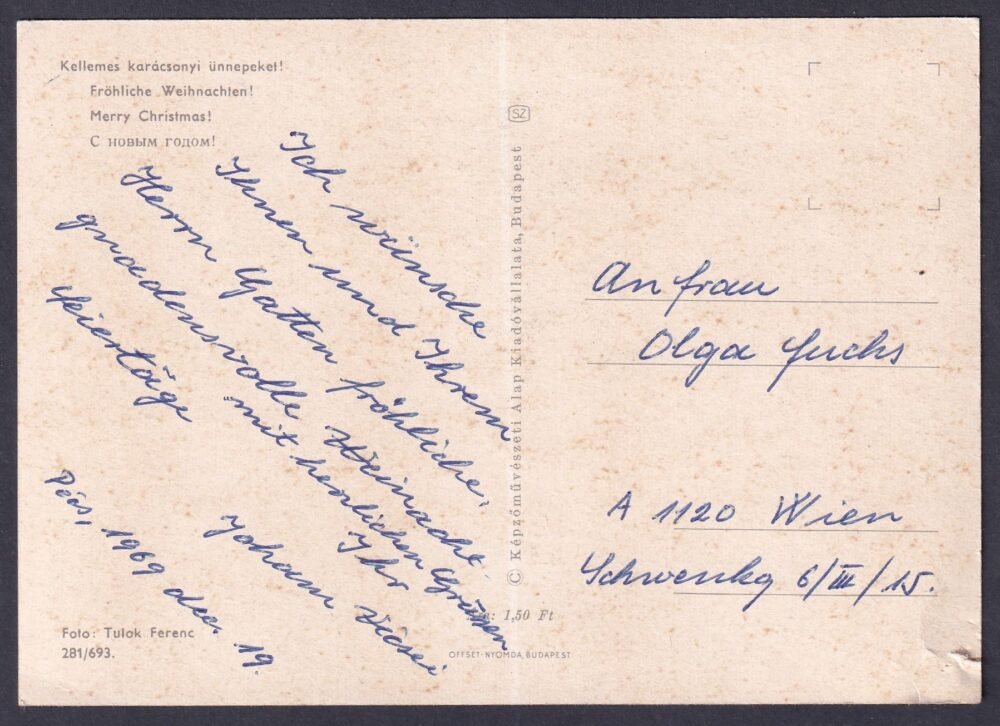 Kellemes karácsonyi ünnepeket!
Fröhliche Weihnachten!
Merry Christmas!
С новым годом!
Ich wünsche
Ihnen und Ihrem
Herrn Gatten fröhliche,
gnadensvolle Weinacht-
feiertäge
mit herzlichen Grüssen
Ihr
Johann
Pécs, 1969 dec. 19.
Foto: Tulok Ferenc
281/693.
SZ
© Képzőművészeti Alap Kiadóvállalata, Budapest
: 1,50 Ft
OFFSET-NYOMDA, BUDAPEST
An Frau
Olga Fuchs
A 1120 Wien
6/III/15.